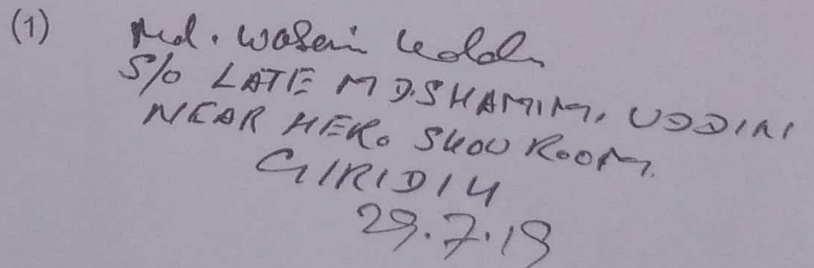 (1) Md. Wasein Uddin
S/O LATE MD.SHAMIM. UDDIN
NEAR HERO SHOW ROOM.
GIRIDIH
29.7.19